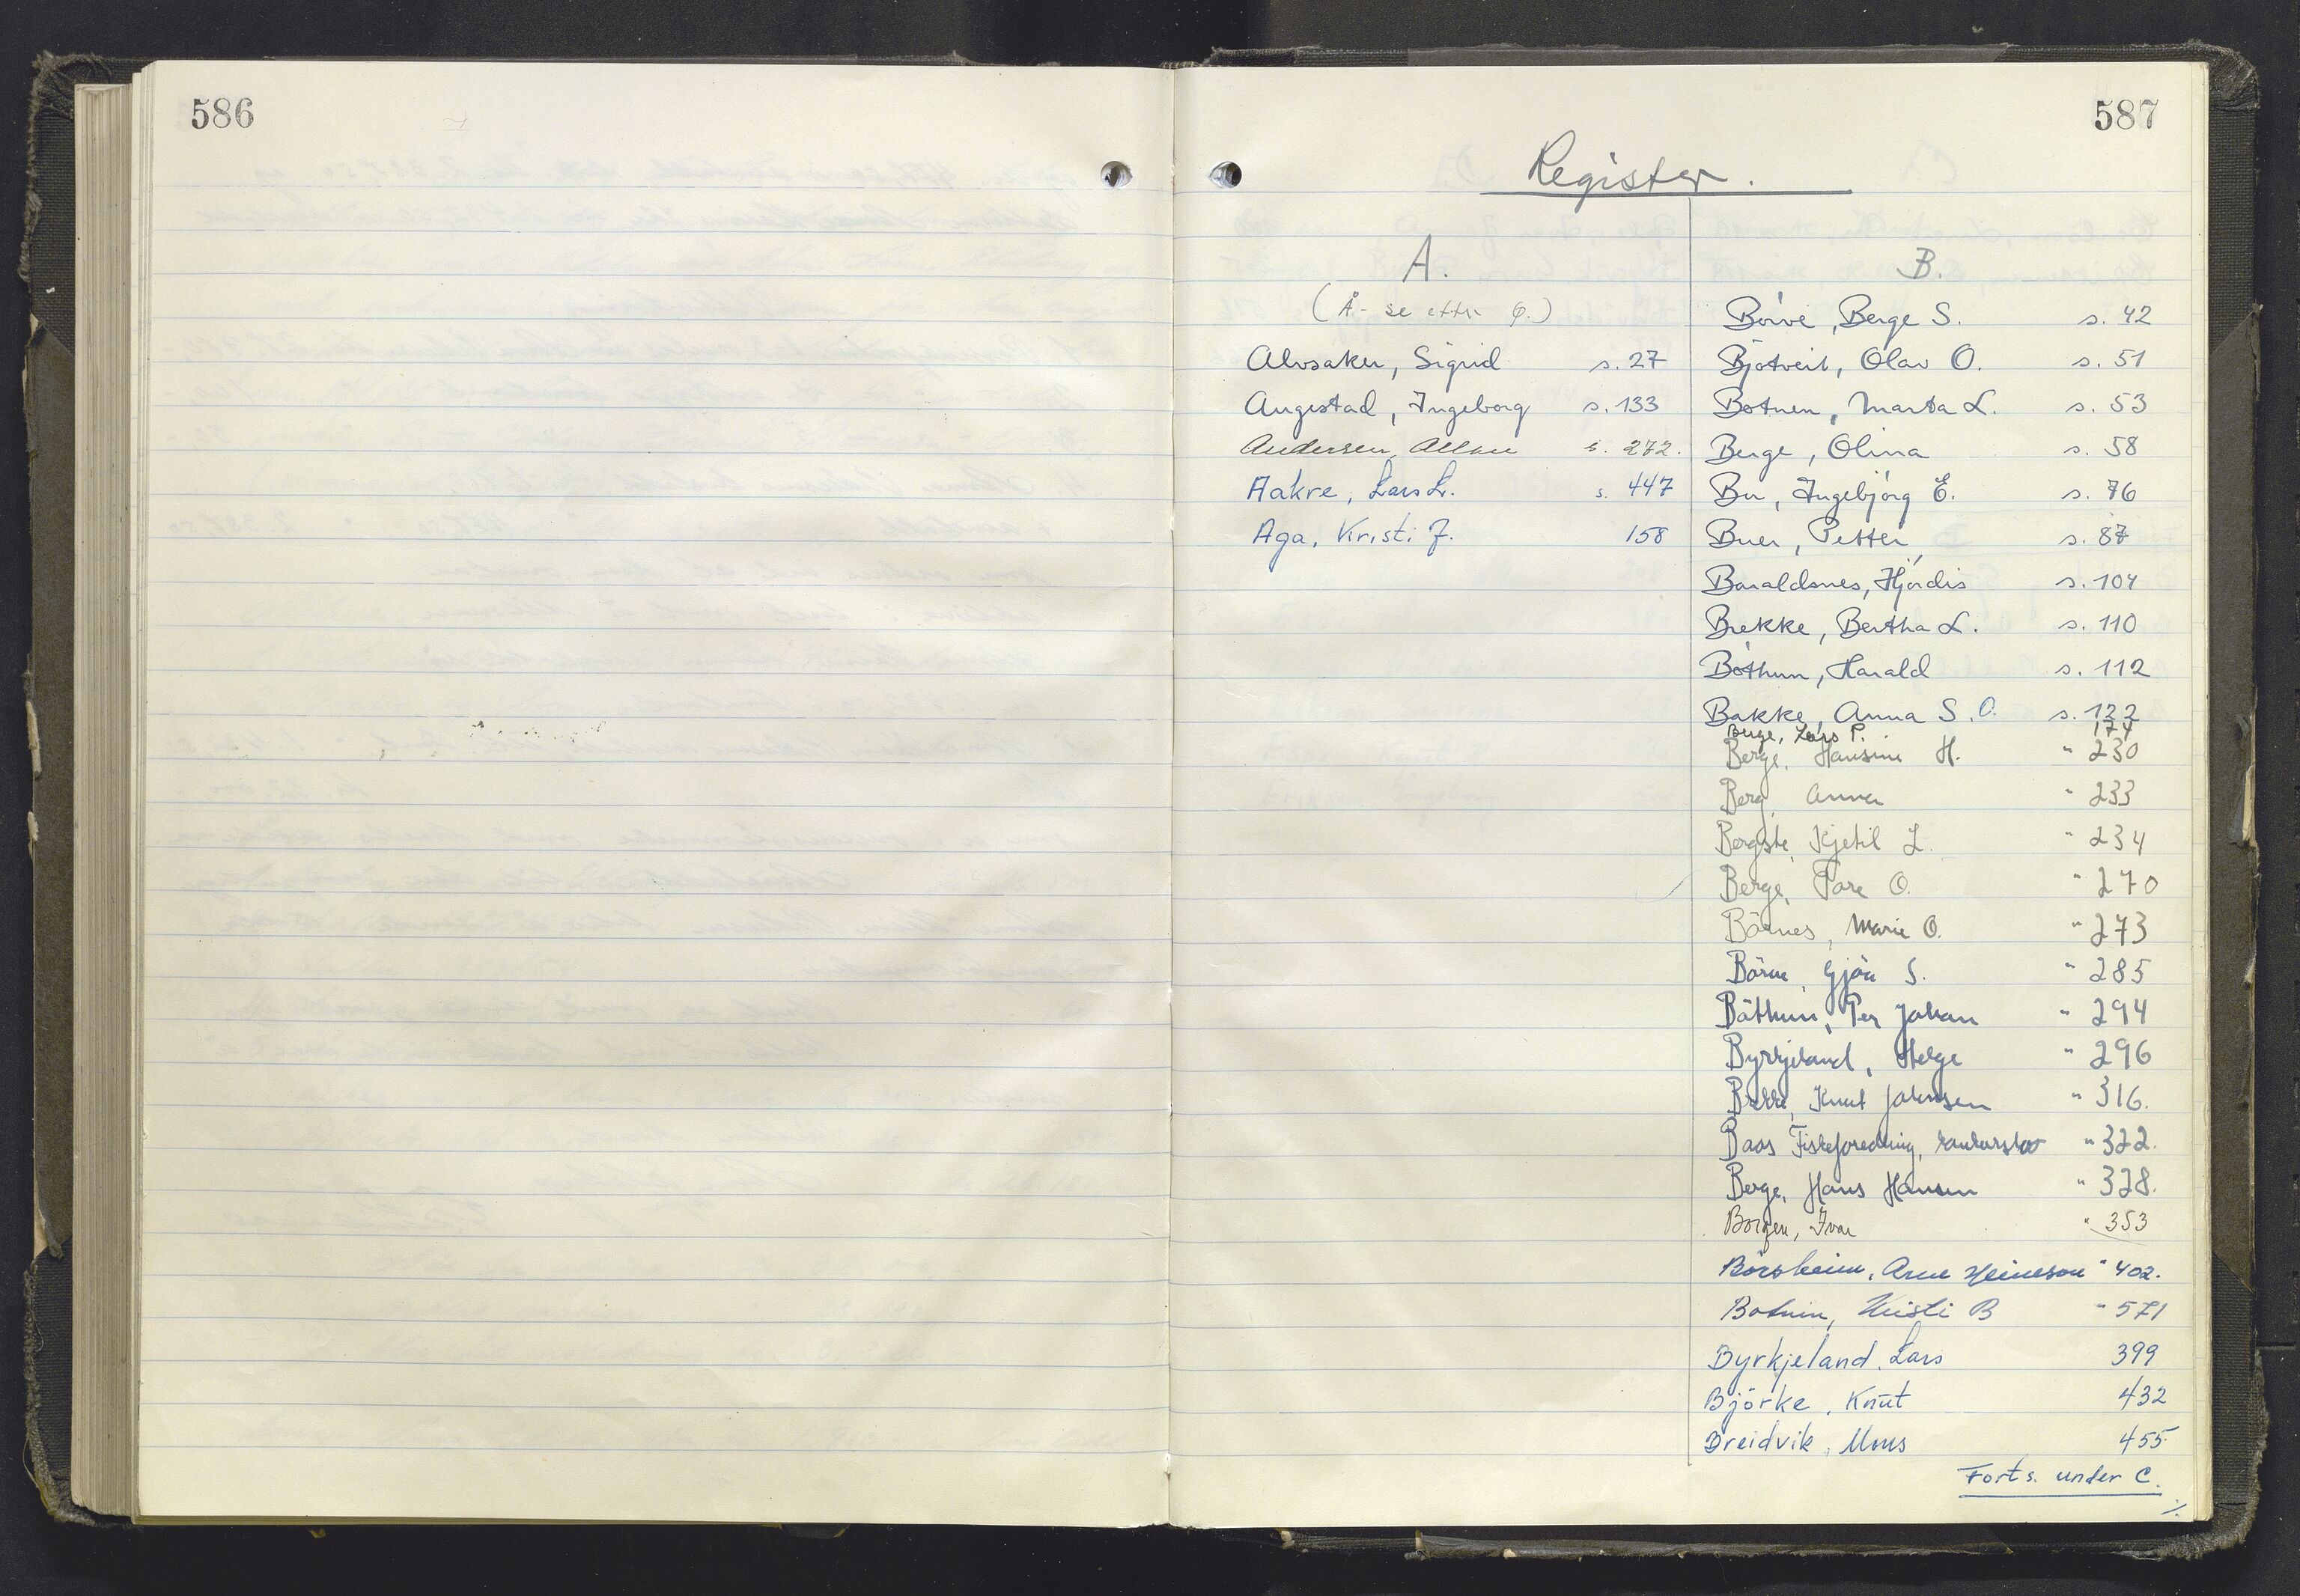 586
587
Register.
A.
(Å - se etter Ø.)
Alvsaker, Sigrid s. 27
Augestad, Ingeborg s. 133
Andersen, Allan s. 272.
Aakre, Lars L. s. 447
Aga, Kristi J. 158
B.
Börve, Berge S. s. 42
Bjotveit, Olav O. s. 51
Botnen, Marta L. s. 53
Berge, Olina s. 58
Bu, Ingebjörg E. s. 76
Buer, Petter s. 87
Baraldsnes, Hjördis s. 104
Brekke, Bertha L. s. 110
Böthun, Harald s. 112
Bakke, Anna S. O. s. 122
Berge, Lars P. 174
Berge, Hansine H. " 230
Berg, Anna " 233
Bergstø, Kjetil L. " 234
Berge, Tore O. " 270
Börnes, Marie O. " 273
Börve, Gjöa S. " 285
Böthun, Per Johan " 294
Byrkjeland, Helge " 296
Brekke, Knut Johnsen " 316.
Baas Fiskeforedling, " 322.
Berge, Hans Hansen " 328.
Borgen, Ivar " 353
Börsheim, Arne Heineson " 402.
Botnen, Kristi B " 571
Byrkjeland, Lars 399
Björke, Knut 432
Breidvik, Mons 455
Forts. under C.
%